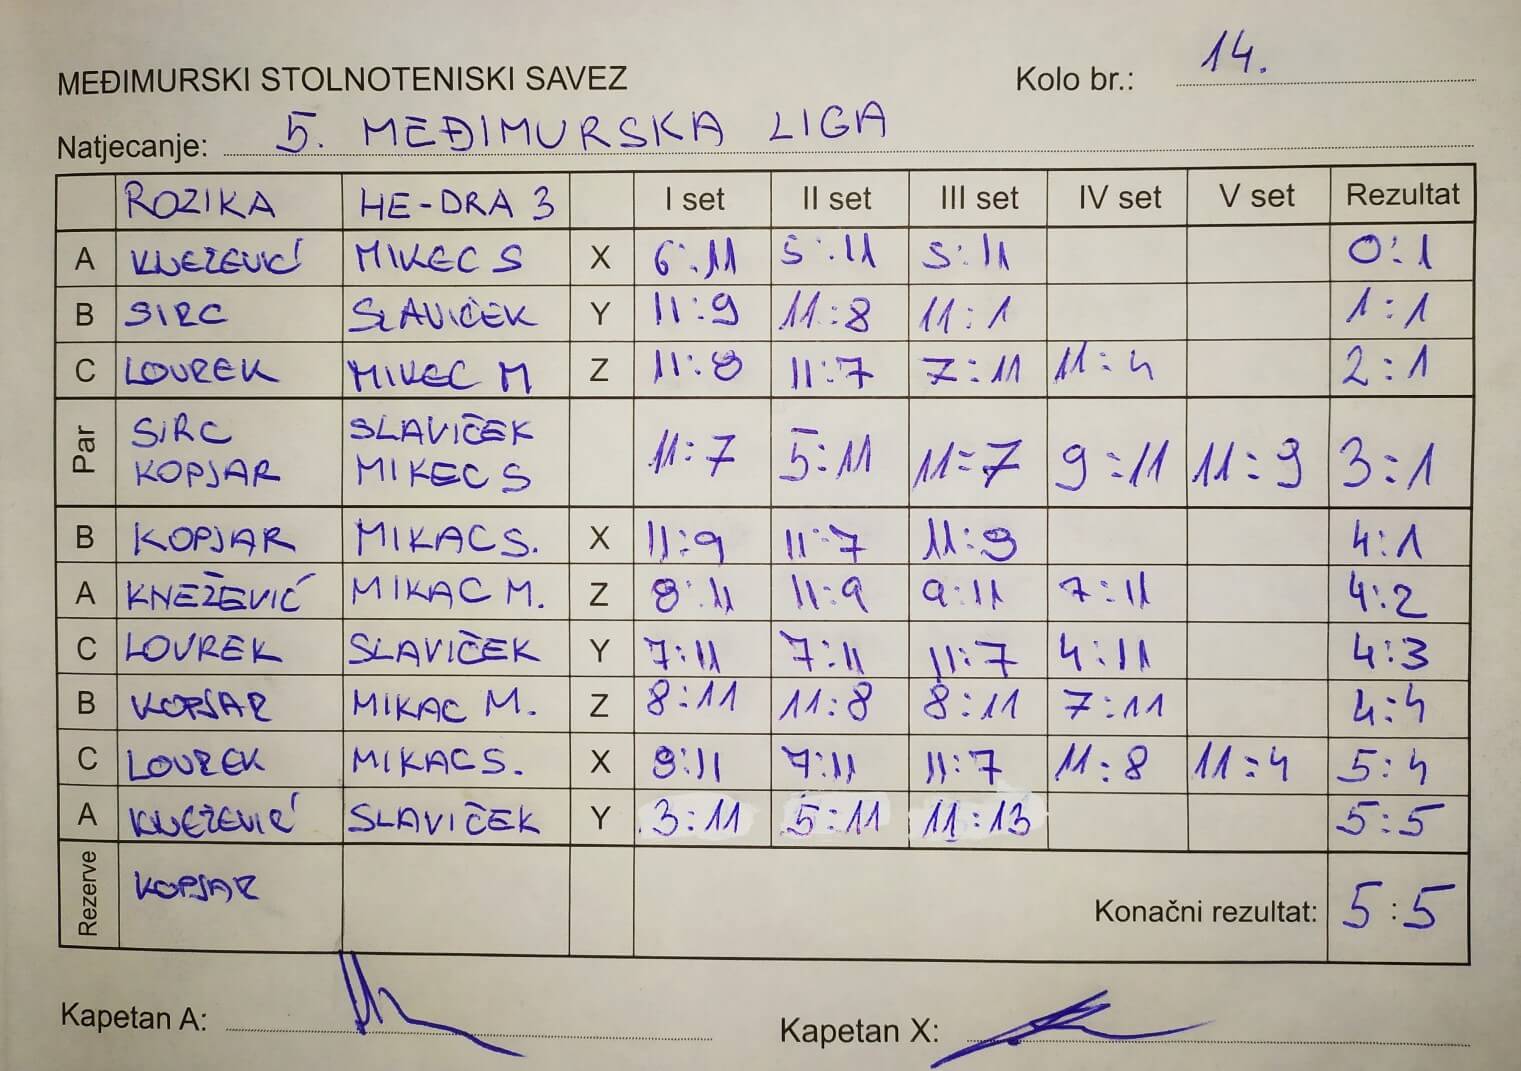 MEĐIMURSKI STOLNOTENISKI SAVEZ Kolo br.: 14.
Natjecanje: 5. MEĐIMURSKA LIGA
ROZIKA HE-DRA 3 I set II set III set IV set V set Rezultat
A KNEZEVIĆ MIKEC S X 6:11 5:11 5:11 0:1
B SIRC SLAVIČEK Y 11:9 11:8 11:1 1:1
C LOUREK MIKEC M Z 11:8 11:7 7:11 11:4 2:1
Par SIRC SLAVIČEK 11:7 5:11 11=7 9:11 11:9 3:1
KOPJAR MIKEC S
B KOPJAR MIKAC S. X 11:9 11:7 11:9 4:1
A KNEŽEVIĆ MIKAC M. Z 8:11 11:9 9:11 7:11 4:2
C LOUREK SLAVIČEK Y 7:11 7:11 11:7 4:11 4:3
B KOPJAR MIKAC M. Z 8:11 11:8 8:11 7:11 4:4
C LOUREK MIKAC S. X 9:11 7:11 11:7 11:8 11:4 5:4
A KNEZEVIĆ SLAVIČEK Y 3:11 5:11 11:13 5:5
Rezerve KOPJAR Konačni rezultat: 5:5
Kapetan A: Kapetan X: